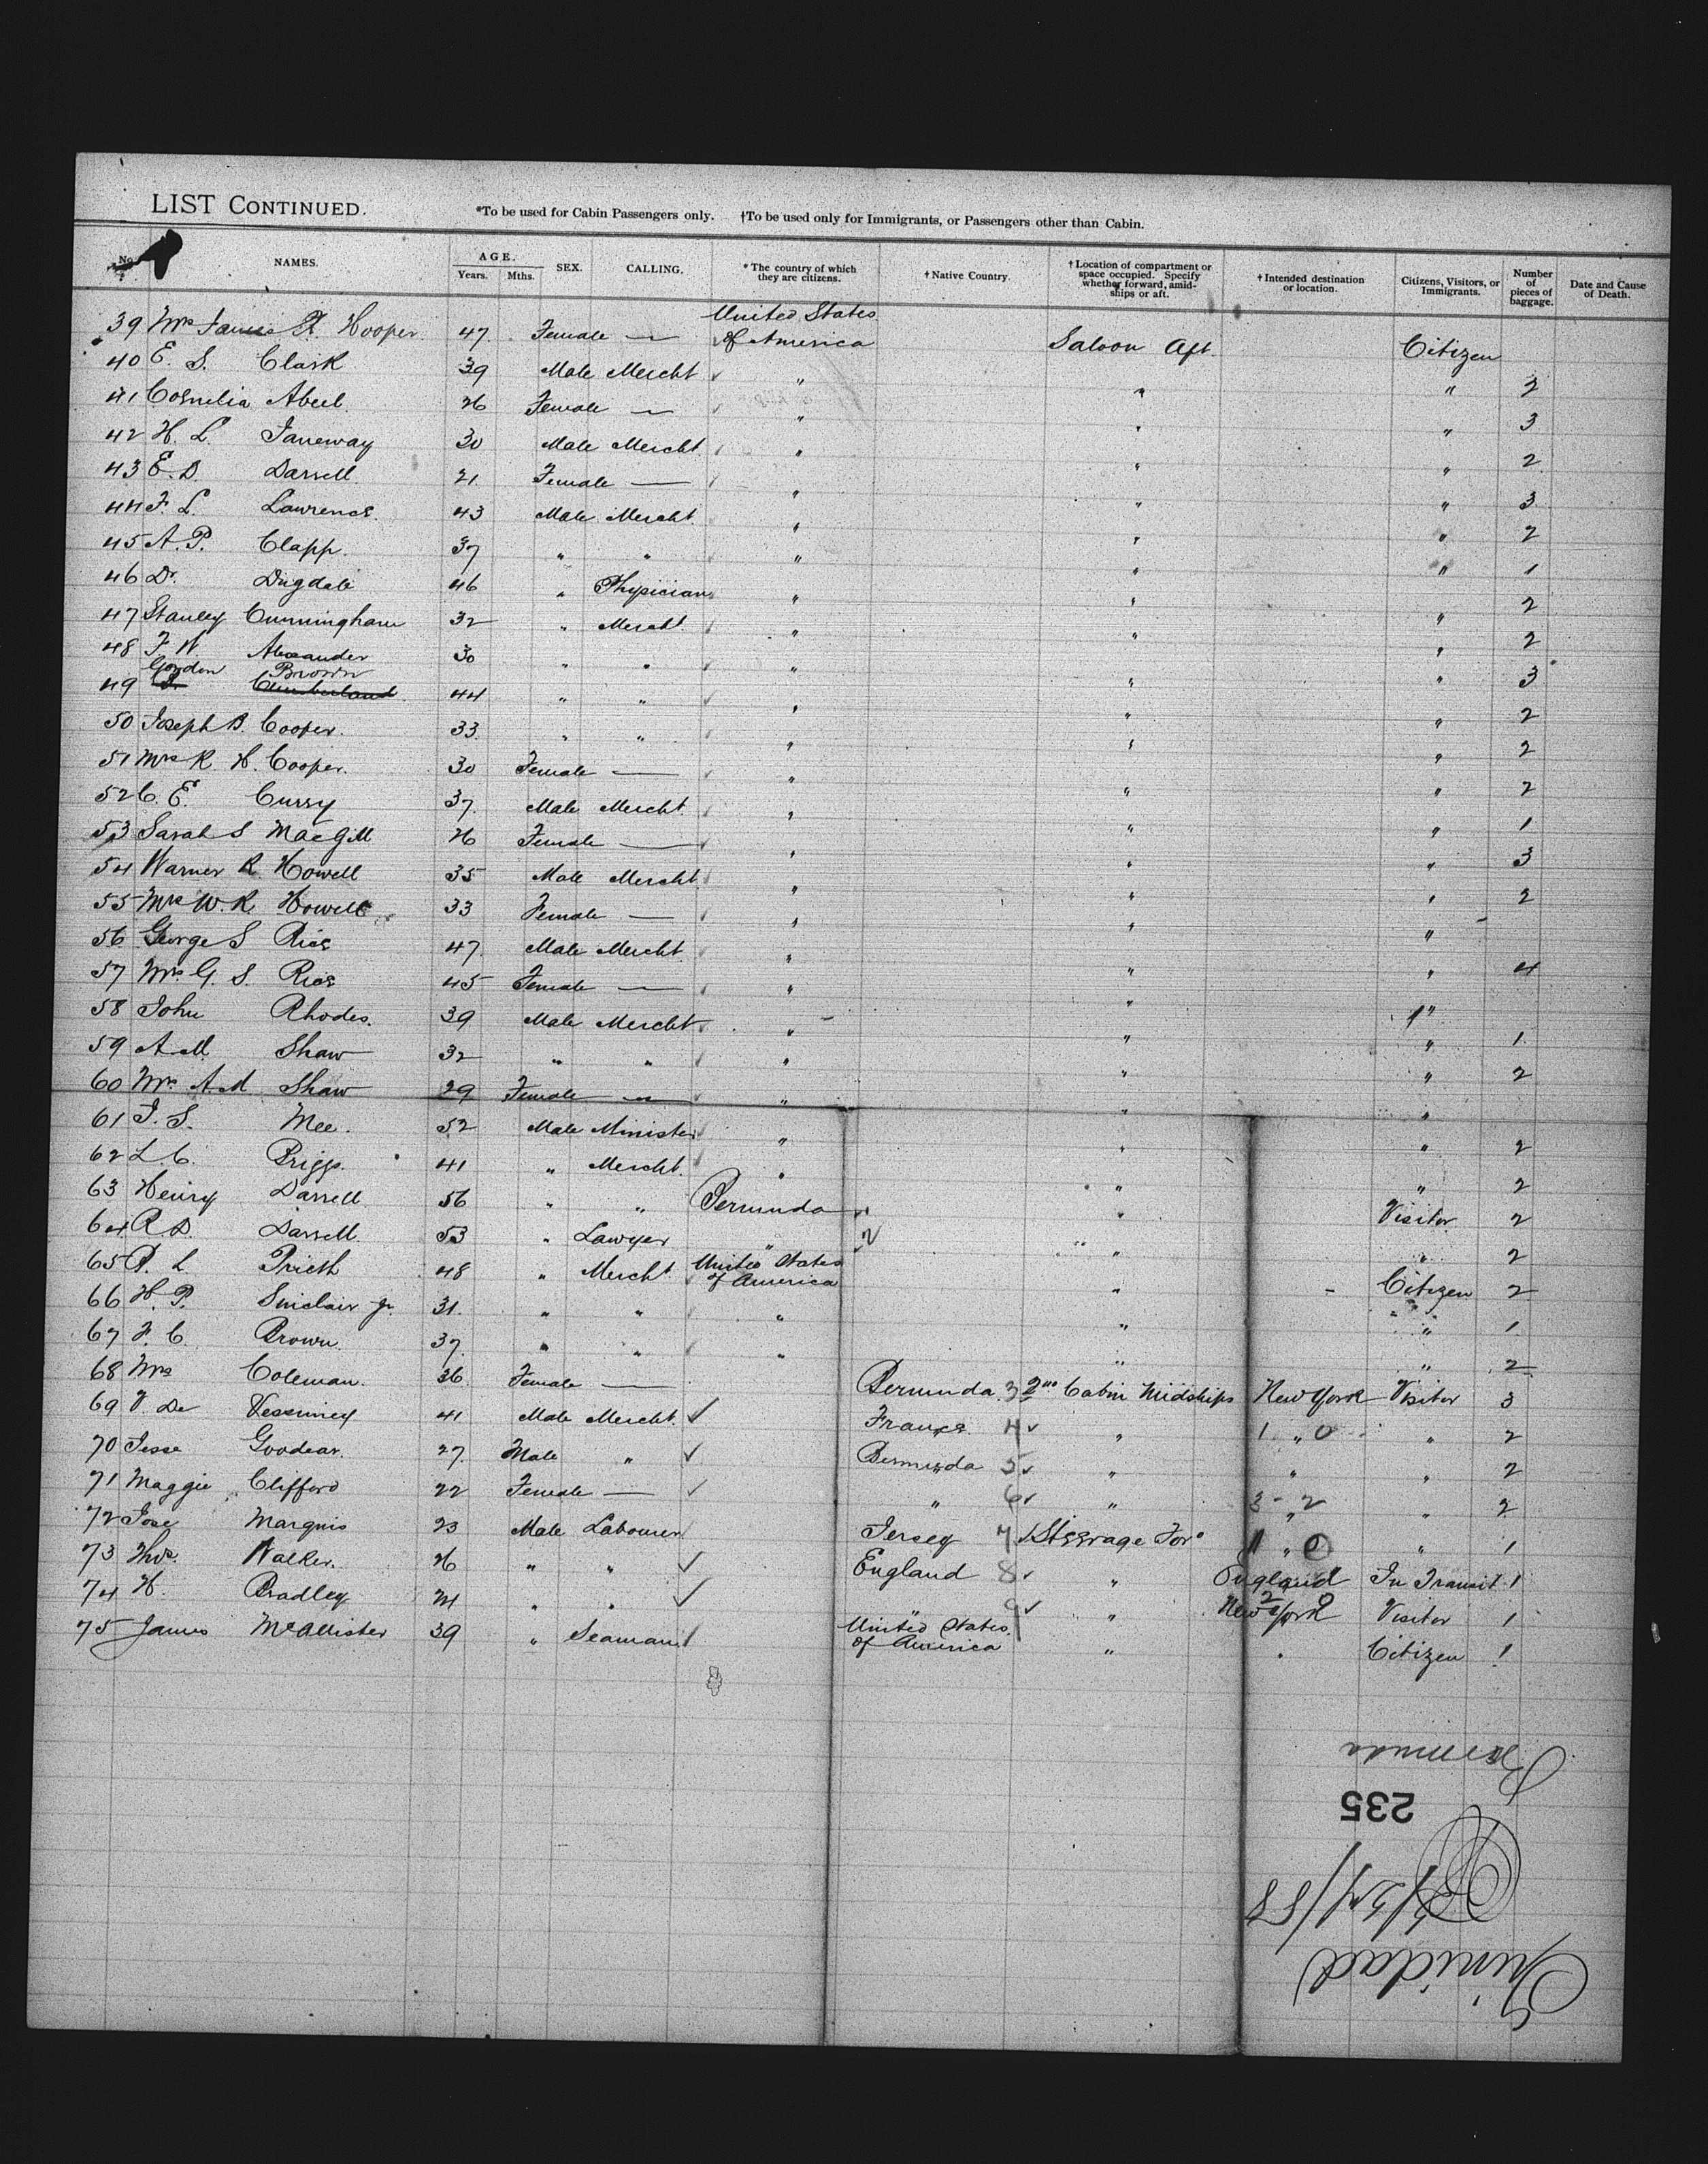 LIST CONTINUED. *To be used for Cabin Passengers only. †To be used only for Immigrants, or Passengers other than Cabin.
No. NAMES. AGE. Years. Mths. SEX. CALLING. *The country of which they are citizens. †Native Country. †Location of compartment or space occupied. Specify whether forward, amidships or aft. †Intended destination or location. Citizens, Visitors, or Immigrants. Number of pieces of baggage. Date and Cause of Death.
39 Mrs James R Hooper. 47. Female — United States of America Saloon Aft. Citizen
40 E. S. Clark 39 Male Mercht " " " 2
41 Cornelia Abeel. 26 Female — " " " 3
42 H. L. Janeway 30 Male Mercht. " " " 2
43 E. D. Darrell. 21. Female — " " " 3
44 F. L. Lawrence. 43 Male Mercht. " " " 2
45 A. P. Clapp. 37 " " " " " 1
46 Dr. Dugdale 46 " Physician " " " 2
47 Stanley Cunningham 32 " Mercht. " " " 2
48 F. W. Alexander 30 " " " " " 3
49 Gordon Brown Cumberland 44 " " " " " 2
50 Joseph B. Cooper. 33. " " " " " 2
51 Mrs R. H. Cooper. 30 Female — " " " 2
52 C. E. Curry 37. Male Mercht. " " " 1
53 Sarah S MacGill 26 Female — " " " 3
54 Warner R. Howell 35 Male Mercht. " " " 2
55 Mrs W. R. Howell 33 Female — " " "
56 George S Rice 47. Male Mercht. " " " 4
57 Mrs G. S. Rice 45 Female — " " "
58 John Rhodes. 39 Male Mercht " " " 1
59 A. M. Shaw 32 " " " " " 2
60 Mrs. A. M Shaw 29 Female — " " "
61 J. S. Mee. 52 Male Minister " " " 2
62 L. C. Briggs. 41 " Mercht. " " " 2
63 Henry Darrell 56 " " Bermuda " Visitor 2
64 R. D. Darrell 53 " Lawyer " " " 2
65 L 48 " Mercht United States of America " Citizen 2
66 H. P. Sinclair jr. 31. " " " " " 1
67 F. C. Brown. 37. " " " " " 2
68 Mrs Coleman. 36. Female — Bermuda 3 2nd Cabin Midships New York Visitor 3
69 V. De 41 Male Mercht. ✓ France 4 ✓ " 1 " 0 " 2
70 Jesse Goodear. 27. Male " ✓ Bermuda 5 ✓ " " " 2
71 Maggie Clifford 22 Female — ✓ " 6 ✓ " 3 - 2 " " 2
72 Jose Marquis 23 Male Labourer Jersey 7 ✓ Steerage For'd 11 " 0 " 1
73 Thos. Walker. 26 " " ✓ England 8 ✓ " England In Transit 1
74 H. Bradley 24 " " ✓ " 9 ✓ " New York 2 0 Visitor 1
75 James McAllister 39 " Seaman United States of America " " Citizen 1
Bermuda
235
Trinidad